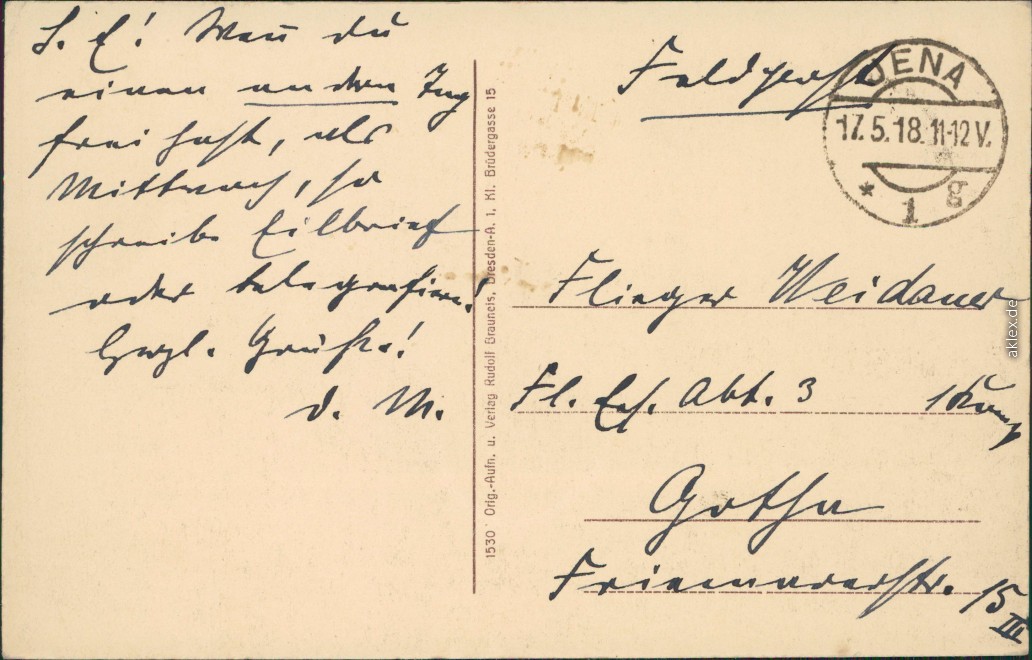 L. E! Wenn du
einen andren Tag
frei hast, als
Mittwoch, so
schreibe Eilbrief
oder telegrafiere!
Herzl. Grüße!
d. M.
1530 Orig.-Aufn. u. Verlag Rudolf Brauneis, Dresden-A. 1, Kl. Brüdergasse 15
Feldpost
JENA
17.5.18.11-12V.
* 1 g
Flieger Weidauer
Fl. Ers. Abt. 3
Gotha
Friemarerstr. 15 III
aklex.de